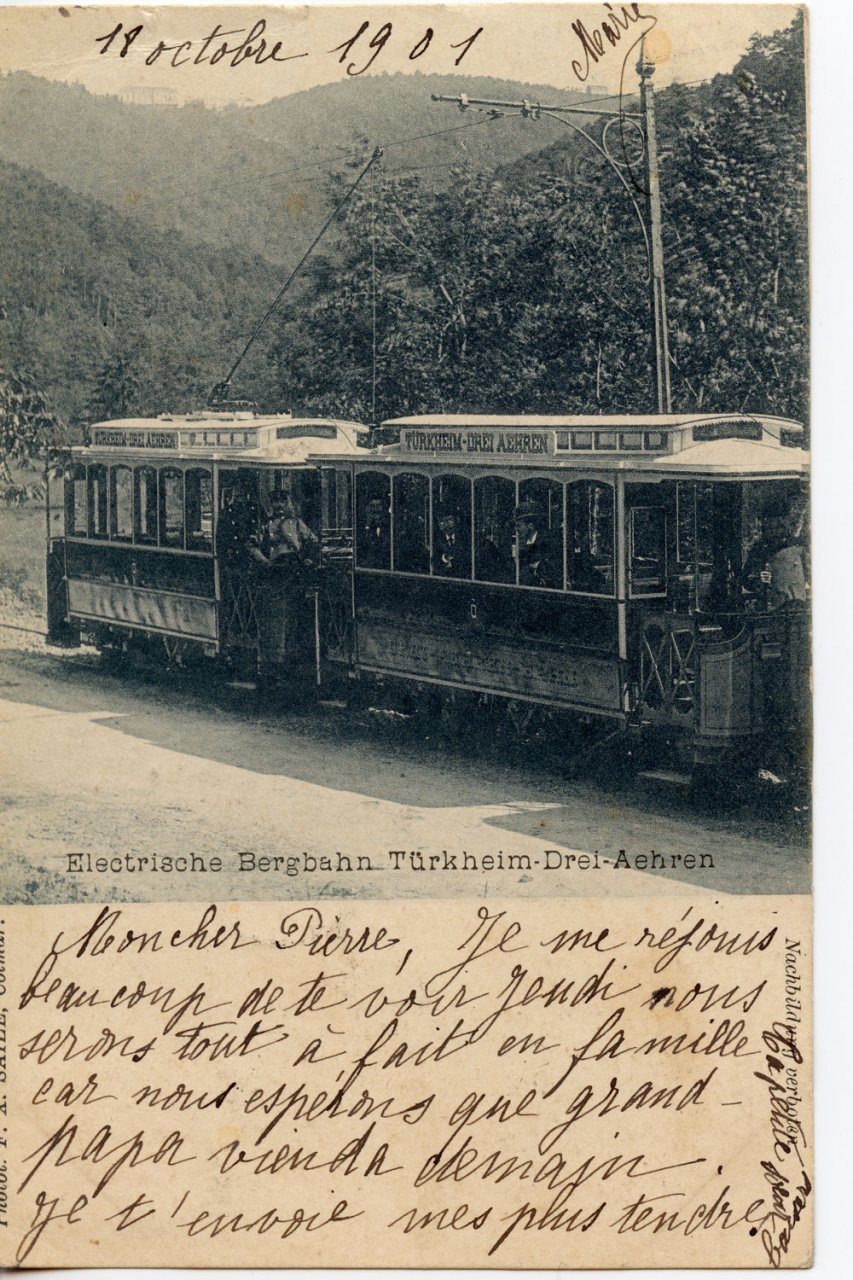 18 octobre 1901
Marie
TÜRKHEIM-DREI AEHREN
TÜRKHEIM-DREI AEHREN
Electrische Bergbahn Türkheim-Drei-Aehren
Mon cher Pierre, Je me réjouis
beaucoup de te voir Jeudi nous
serons tout à fait en famille
car nous espérons que grand-
papa vienda demain.
Je t'envoie mes plus tendre
Ta petite
Nachbildung verboten.
Photot. F. X. SAILE, Colmar.